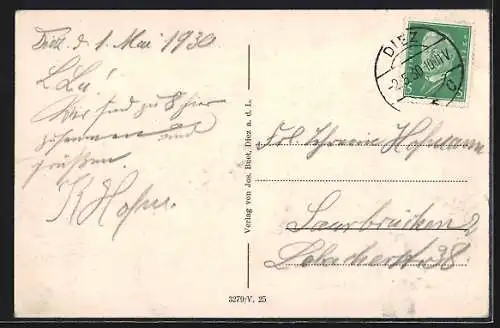 Diez. d. 1. Mai 1930.
L. L.!
Wir sind zu 8 hier
zusammen und
grüßen.
K Hofm.
Verlag von Jos. Buet, Diez a. d. L.
3279/V. 25
DIEZ
-2.5.30.10-11V.
Hofmann
Saarbrücken 2